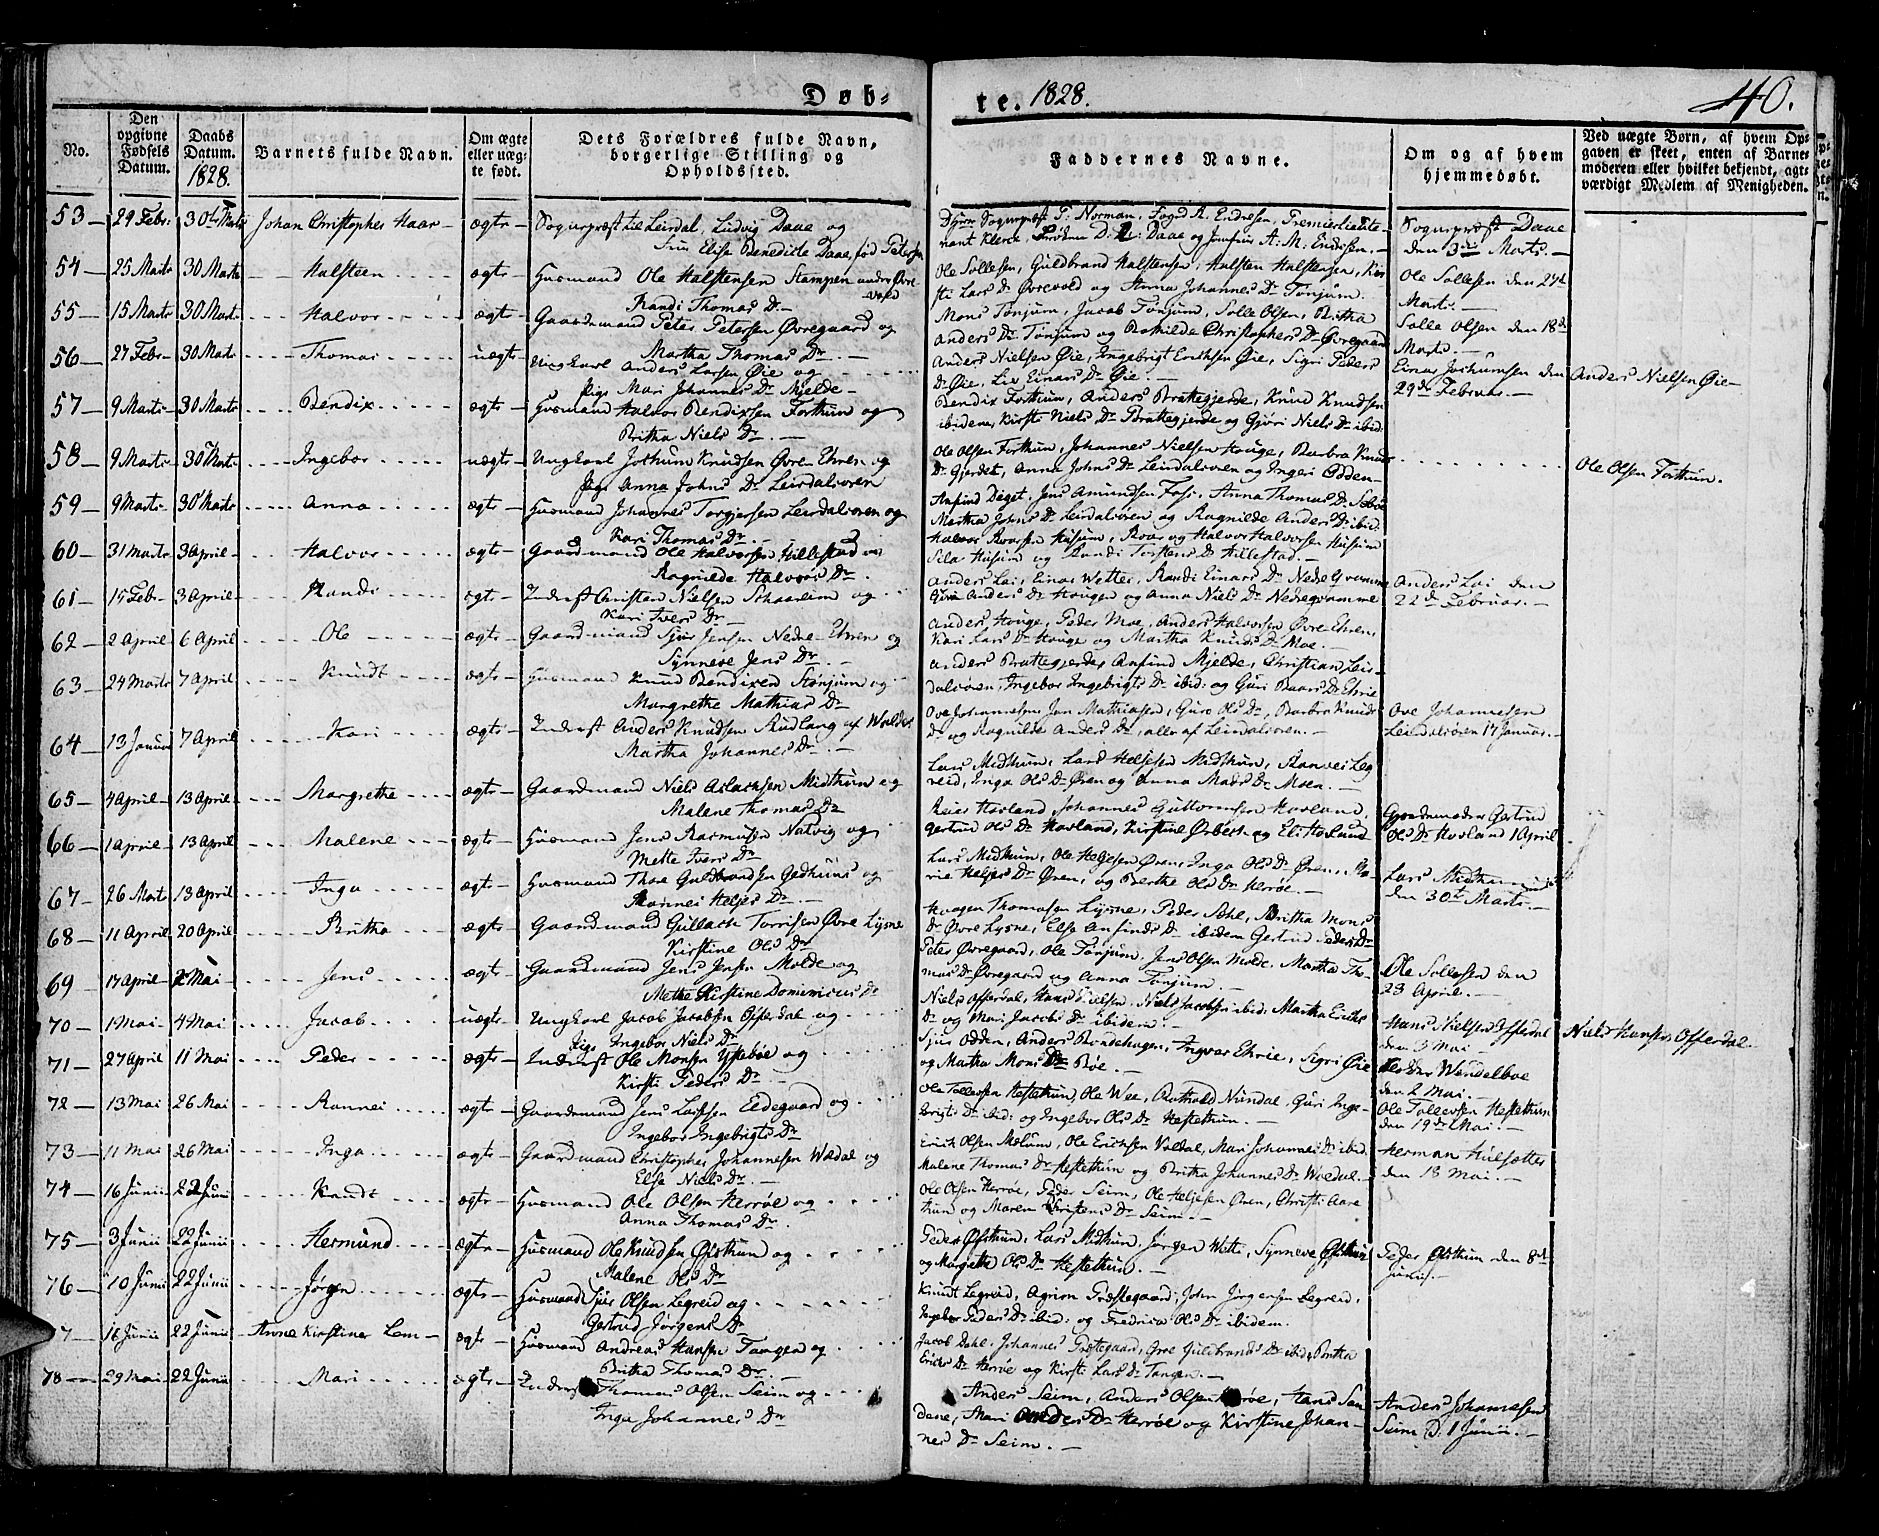 Døb-
te. 1828.
40.
No.
Den opgivne Fødsels Datum.
Daabs Datum. 1828.
Barnets fulde Navn.
Om ægte eller uægte født.
Dets Forældres fulde Navn, borgerlige Stilling og Opholdssted.
Faddernes Navne.
Om og af hvem hjemmedøbt.
Ved uægte Børn, af hvem Opgaven er skeet, enten af Barnemoderen eller hvilket bekjendt, agtværdigt Medlem af Menigheden.
53 29 Febr. 30te Marts Johan Christopher Haar ægte Sogneprest til Leirdal, Ludvig Daae og
Frue Elise Benedicte Daae, fød Petersen
Norman, Fogd A. Eridresen, Premierlieute-
nant D: Daae og Jomfrue A. M.
Sogneprest Daae
den 3die Marts.
54 25 Marts 30 Marts Halsteen ægte Husmand Ole Halstensen Stampen under Øvre-
vold
Randi Thomas Dr.
Ole Sollesen, Guldbrand Halstensen, Halsten Halstensen, Kir-
sti Lars Dr Øvrevold og Anna Johannes Dr Tønjum.
Ole Sollesen den 27de
Marts.
55 15 Marts 30 Marts Halvor ægte Gaardmand Peter Petersen Øvregaard og
Martha Thomas Dr
Mons Tønjum, Jacob Tønjum, Solle Olsen, Britha
Anders Dr Tønjum og Bothilde Christophers Dr Øvregaard
Solle Olsen den 18de
Marts.
56 27 Febr. 30 Marts Thomas uægte Ungkarl Anders Larsen Øie og
Pige Mari Johannes Dr Mjelde
Anders Nielsen Øie, Ingebrigt Erichsen Øie, Sigri Peders
Dr Øie, Lix Einars Dr Øie.
Einar Jochumsen den
29de Februar.
Anders Nielsen Øie
57 9 Marts 30 Marts Bendix ægte Husmand Halvor Bendixen Forthun og
Britha Niels Dr.
Bendix Forthun, Anders Brattegjerde, Knud Knudsen
ibidem, Kirsti Niels Dr Brattegjerde og Gjøri Niels Dr ibid:
58 9 Marts 30 Marts Ingebor uægte Ungkarl Jochum Knudsen Øvre-Ehren og
Pige Anna Johns Dr Leirdalsøren
Ole Olsen Forthun, Johannes Nielsen Houge, Barbra Knuds
Dr Gjerdet, Anna Johns Dr Leirdalsøren og Ingeri Odden
Ole Olsen Forthun.
59 9 Marts 30 Marts Anna ægte Husmand Johannes Torgersen Leirdalsøren og
Kari Thomas Dr.
Anfind Jens Amundsen Anna Thomas Dr
Martha Johns Dr Leirdalsøren og Ragnilde Anders Dr ibid:
60 31 Marts 3 April Halvor ægte Gaardmand Ole Halvorsen Hillestad og
Ragnilde Halvors Dr.
Halvor Husum, Roar og Halvor Halvorsen Husum
Sila Husum og Randi Torstens Dr Hillestad.
61 15 Febr. 3 April Randi ægte Inderst Christen Nielsen Schaarheim og
Kari Ivers Dr
Anders Loi, Einar Wetter, Randi Einars Dr Nedre Qvamme
Gjøri Anders Dr Hougen og Anna Niels Dr Nedreqvamme
Anders Loi den
22de Februar.
62 2 April 6 April Ole ægte Gaardmand Sjur Jensen Nedre-Ehren og
Synneve Jens Dr.
Anders Houge, Peder Moe, Anders Halvorsen Øvre-Ehren,
Kari Lars Dr Houge og Martha Knuds Dr Moe.
63 24 Marts 7 April Knudt ægte Husmand Knud Bendixen Tønjum og
Margrethe Mathias Dr
Anders Brattegjerde, Anfind Mjelde, Christian Leir-
dalsøren, Ingebor Ingebrigts Dr ibid: og Guri Baars Dr Ehrie
64 13 Januar 7 April Kari ægte Inderst Anders Knudsen Rudlang af Walders
Martha Johannes Dr.
Ove Johannesen, Jan Mathiasen, Guro Ols Dr, Barbra Knuds
Dr og Ragnilde Anders Dr, alle af Leirdalsøren.
Ove Johannesen
Leirdalsøren 17 Januar.
65 4 April 13 April Margrethe ægte Gaardmand Niels Aslachsen Midthun og
Malene Thomas Dr
Lars Midthun, Lars Helgesen Midthun, Rannei Leg-
reid, Inga Ols Dr Øren og Anna Mads Dr Moen.
66 1 April 13 April Malene ægte Husmand Jens Rasmusen Natvig og
Mette Ivers Dr
Reier Hovland, Johannes Guttormsen Hovland,
Gertrud Ols Dr Hovland, Kirstine og Eli Hovland
Gjordemoder Gertrud
Ols Dr Hovland 1 April
67 26 Marts 13 April Inga ægte Husmand Thore Guldbrandsen Gedhuus og
Rannei Helges Dr.
Lars Midthun, Ole Helgesen Øren, Inga Ols Dr Øren, Ma-
rie Helges Dr Øren, og Berthe Ols Dr Herrøe.
Lars Midthun
den 30te Marts.
68 11 April 20 April Britha ægte Gaardmand Gullach Torrisen Øvre Lysne
Kirstine Ols Dr
Haagen Thomasen Lysne, Peder Britha Mons
Dr Øvre Lysne, Else Anfinds Dr ibidem Gertrud Peders Dr
69 17 April 2 Mai Jens ægte Gaardmand Jens Jensen Molde og
Mette Kirstine Dominicus Dr
Peter Øvregaard, Ole Tønjum, Jens Olsen Molde, Martha Tho-
mas Dr Øvregaard og Anna Tønjum.
Ole Sollesen den
23 April.
70 1 Mai 4 Mai Jacob uægte Ungkarl Jacob Jacobsen Offerdal og
Pige Ingebor Niels Dr
Niels Offerdal, Hans Nielsen, Niels Jacobsen ibid: Martha Erichs
Dr og Mari Jacobs Dr ibidem.
Hans Nielsen Offerdal
den 3 Mai
Niels Hansen Offerdal.
71 27 April 11 Mai Peder ægte Inderst Ole Monsen Yttebøe og
Kirsti Peders Dr.
Sjur Odden, Anders Bondehagen, Ingvar Ehrie, Sigri Øie
og Martha Mons Dr Bøe.
Wendelboe
den 2 Mai.
72 13 Mai 26 Mai Rannei ægte Gaardmand Jens Larsen Eldegaard og
Ingebor Ingebrigts Dr
Ole Tollevsen Hestethun, Ole Wee, Nundal, Guri Inge-
brigts Dr ibid: og Ingebor Ols Dr Hestethun.
Ole Tollevsen Hestethun
den 19de Mai.
73 11 Mai 26 Mai Inga ægte Gaardmand Christopher Johannesen Woldal og
Else Niels Dr.
Erich Olsen Mælum, Ole Erichsen Voldal, Mari Johannes Dr ibid.
Malene Thomas Dr Hestethun og Britha Johannes Dr Woldal.
Herman Hulsætter
den 18 Mai.
74 16 Junii 22 Junii Randi ægte Husmand Ole Olsen Herrøe og
Anna Thomas Dr.
Ole Olsen Herrøe, Peder Seim, Ole Helgesen Øren, Christi Aare
thun og Maren Christens Dr Seim.
75 3 Junii 22 Junii Hermund ægte Husmand Ole Knudsen Øfsthun og
Malene Ols Dr
Peder Øfsthun, Lars Midthun, Jørgen Wetti, Synneve Øfsthun
og Margrethe Ols Dr Hestethun.
Peder Øfsthun den 8de
Junii.
76 10 Junii 22 Junii Jørgen ægte Husmand Sjur Olsen Legreid og
Gertrud Jørgens Dr
Knudt Legreid, Agrim Præstegaard, John Jørgensen Legreid,
Ingebor Peders Dr ibid: og Fredrica Ols Dr ibidem.
7 16 Junii 22 Junii Anne Kirstine Lem ægte Husmand Andreas Hansen Tangen og
Britha Thomas Dr.
Jacob Dahl, Johannes Præstegaard, Guldbrands Dr ibid, Britha
Erichs Dr Herrøe og Kirsti Lars Dr Tangen.
78 29 Mai 22 Junii Mari ægte Inderst Thomas Olsen Seim og
Inga Johannes Dr
Anders Seim, Anders Olsen Herrøe, Hans San
dene, Mari Anders Dr Herrøe og Kirstine Johan-
nes Dr Seim.
Anders Johannesen
Seim D: 1 Junii.